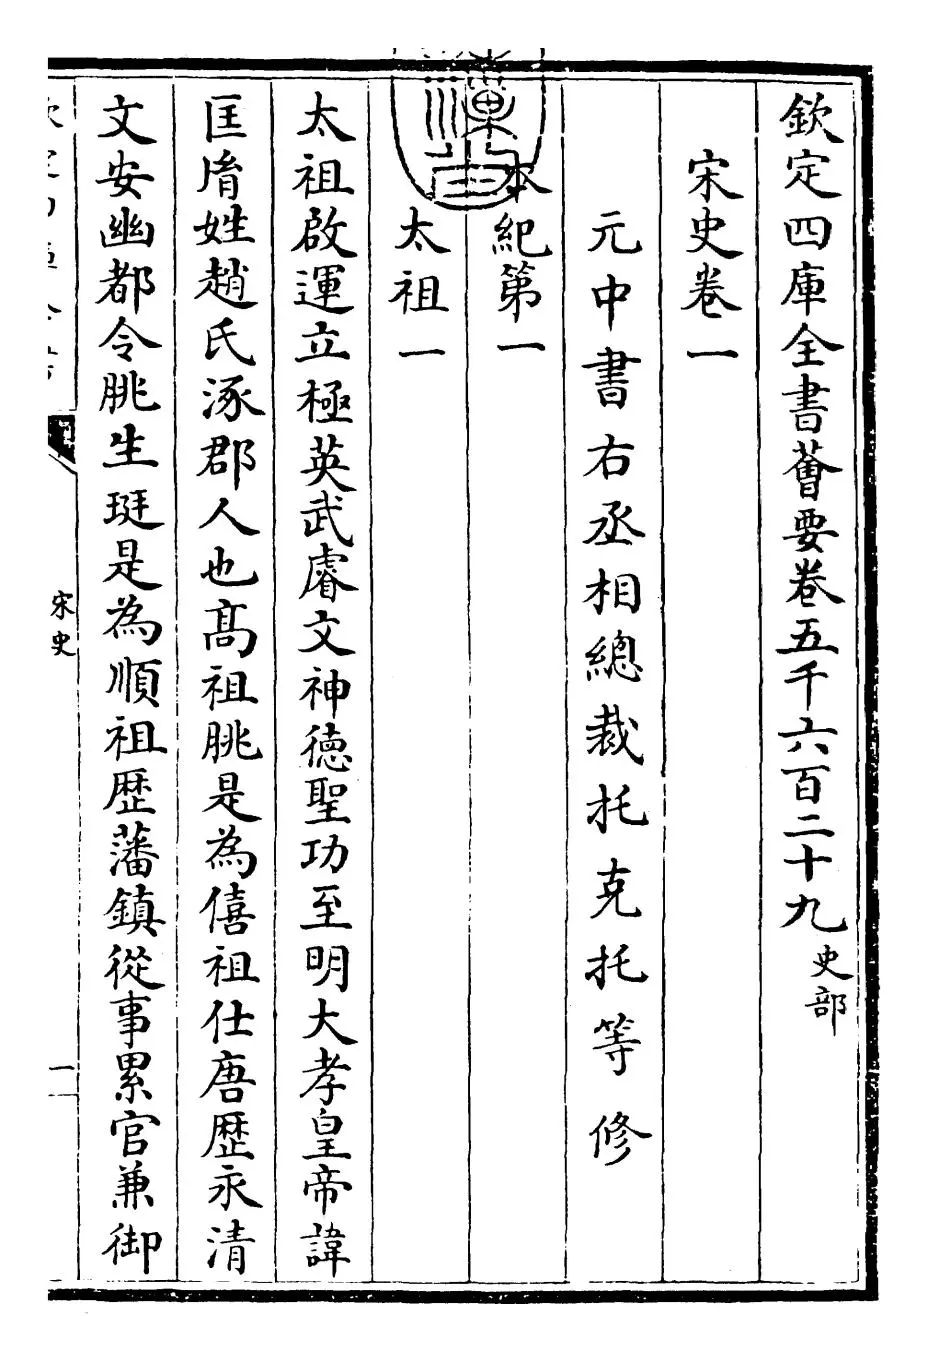 欽定四庫全書薈要卷五千六百二十九史部
宋史卷一
元中書右丞相總裁托克托等修
本紀第一
太祖一
太祖啟運立極英武睿文神德聖功至明大孝皇帝諱
匡胤姓趙氏涿郡人也髙祖朓是為僖祖仕唐歴永清
文安幽都令朓生珽是為順祖歴藩鎮從事累官兼御
宋史
一